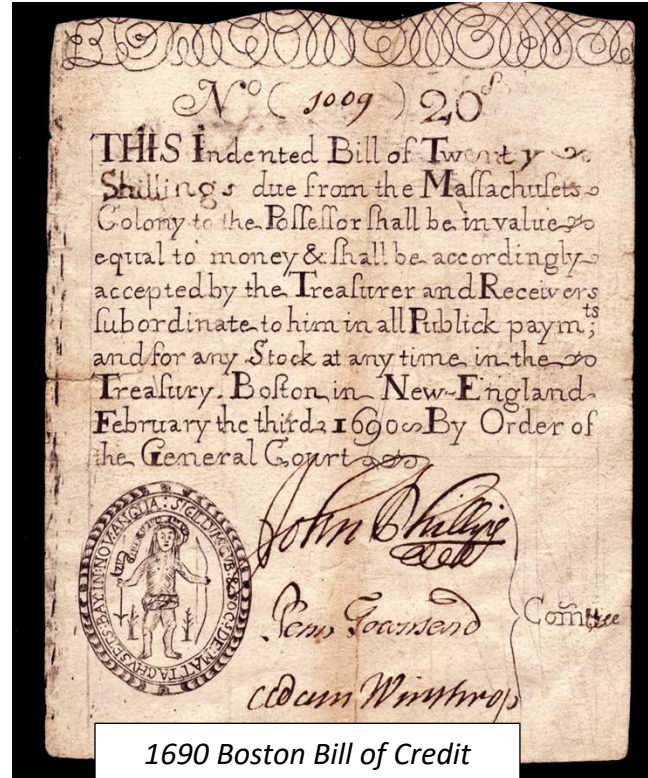 Nº ( 1009 ) 20ˢ
THIS Indented Bill of Twenty
Shillings due from the Maſſachuſets
Colony to the Poſſeſſor ſhall be in value
equal to money & ſhall be accordingly
accepted by the Treaſurer and Receivers
ſubordinate to him in all Publick paymᵗˢ;
and for any Stock at any time in the
Treaſury. Boſton in New-England
February the third 1690 By Order of
the General Court
SIGILLUM GUB & SOC DE MATTACHUSETS BAY IN NOV ANGLIA
John Phillips
Penn Townsend
Adam Winthrop
Com̃tee
1690 Boston Bill of Credit